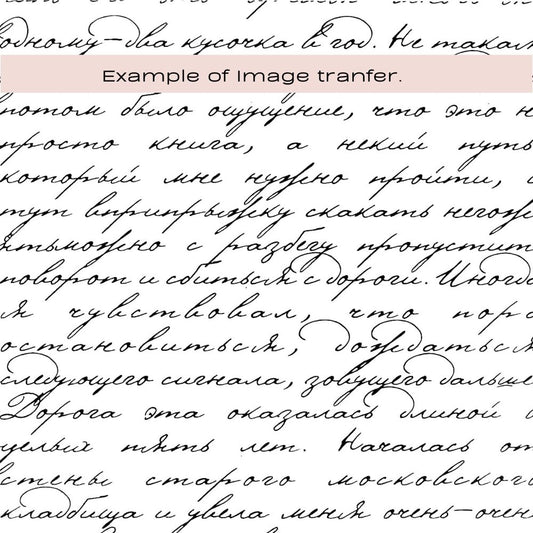 одному-два кусочка в год. Не такая
Example of Image tranfer.
потом было ощущение, что это н
просто книга, а некий путь
который мне нужно пройти,
тут вприпрыжку скакать негож
ятьможно с разбегу пропустит
поворот и сбиться с дороги. Иногда
я чувствовал, что пора
остановиться, дождаться
следующего сигнала, зовущего дальше
Дорога эта оказалась длиной в
целых пять лет. Началась от
стены старого московского
кладбища и увела меня очень-очень